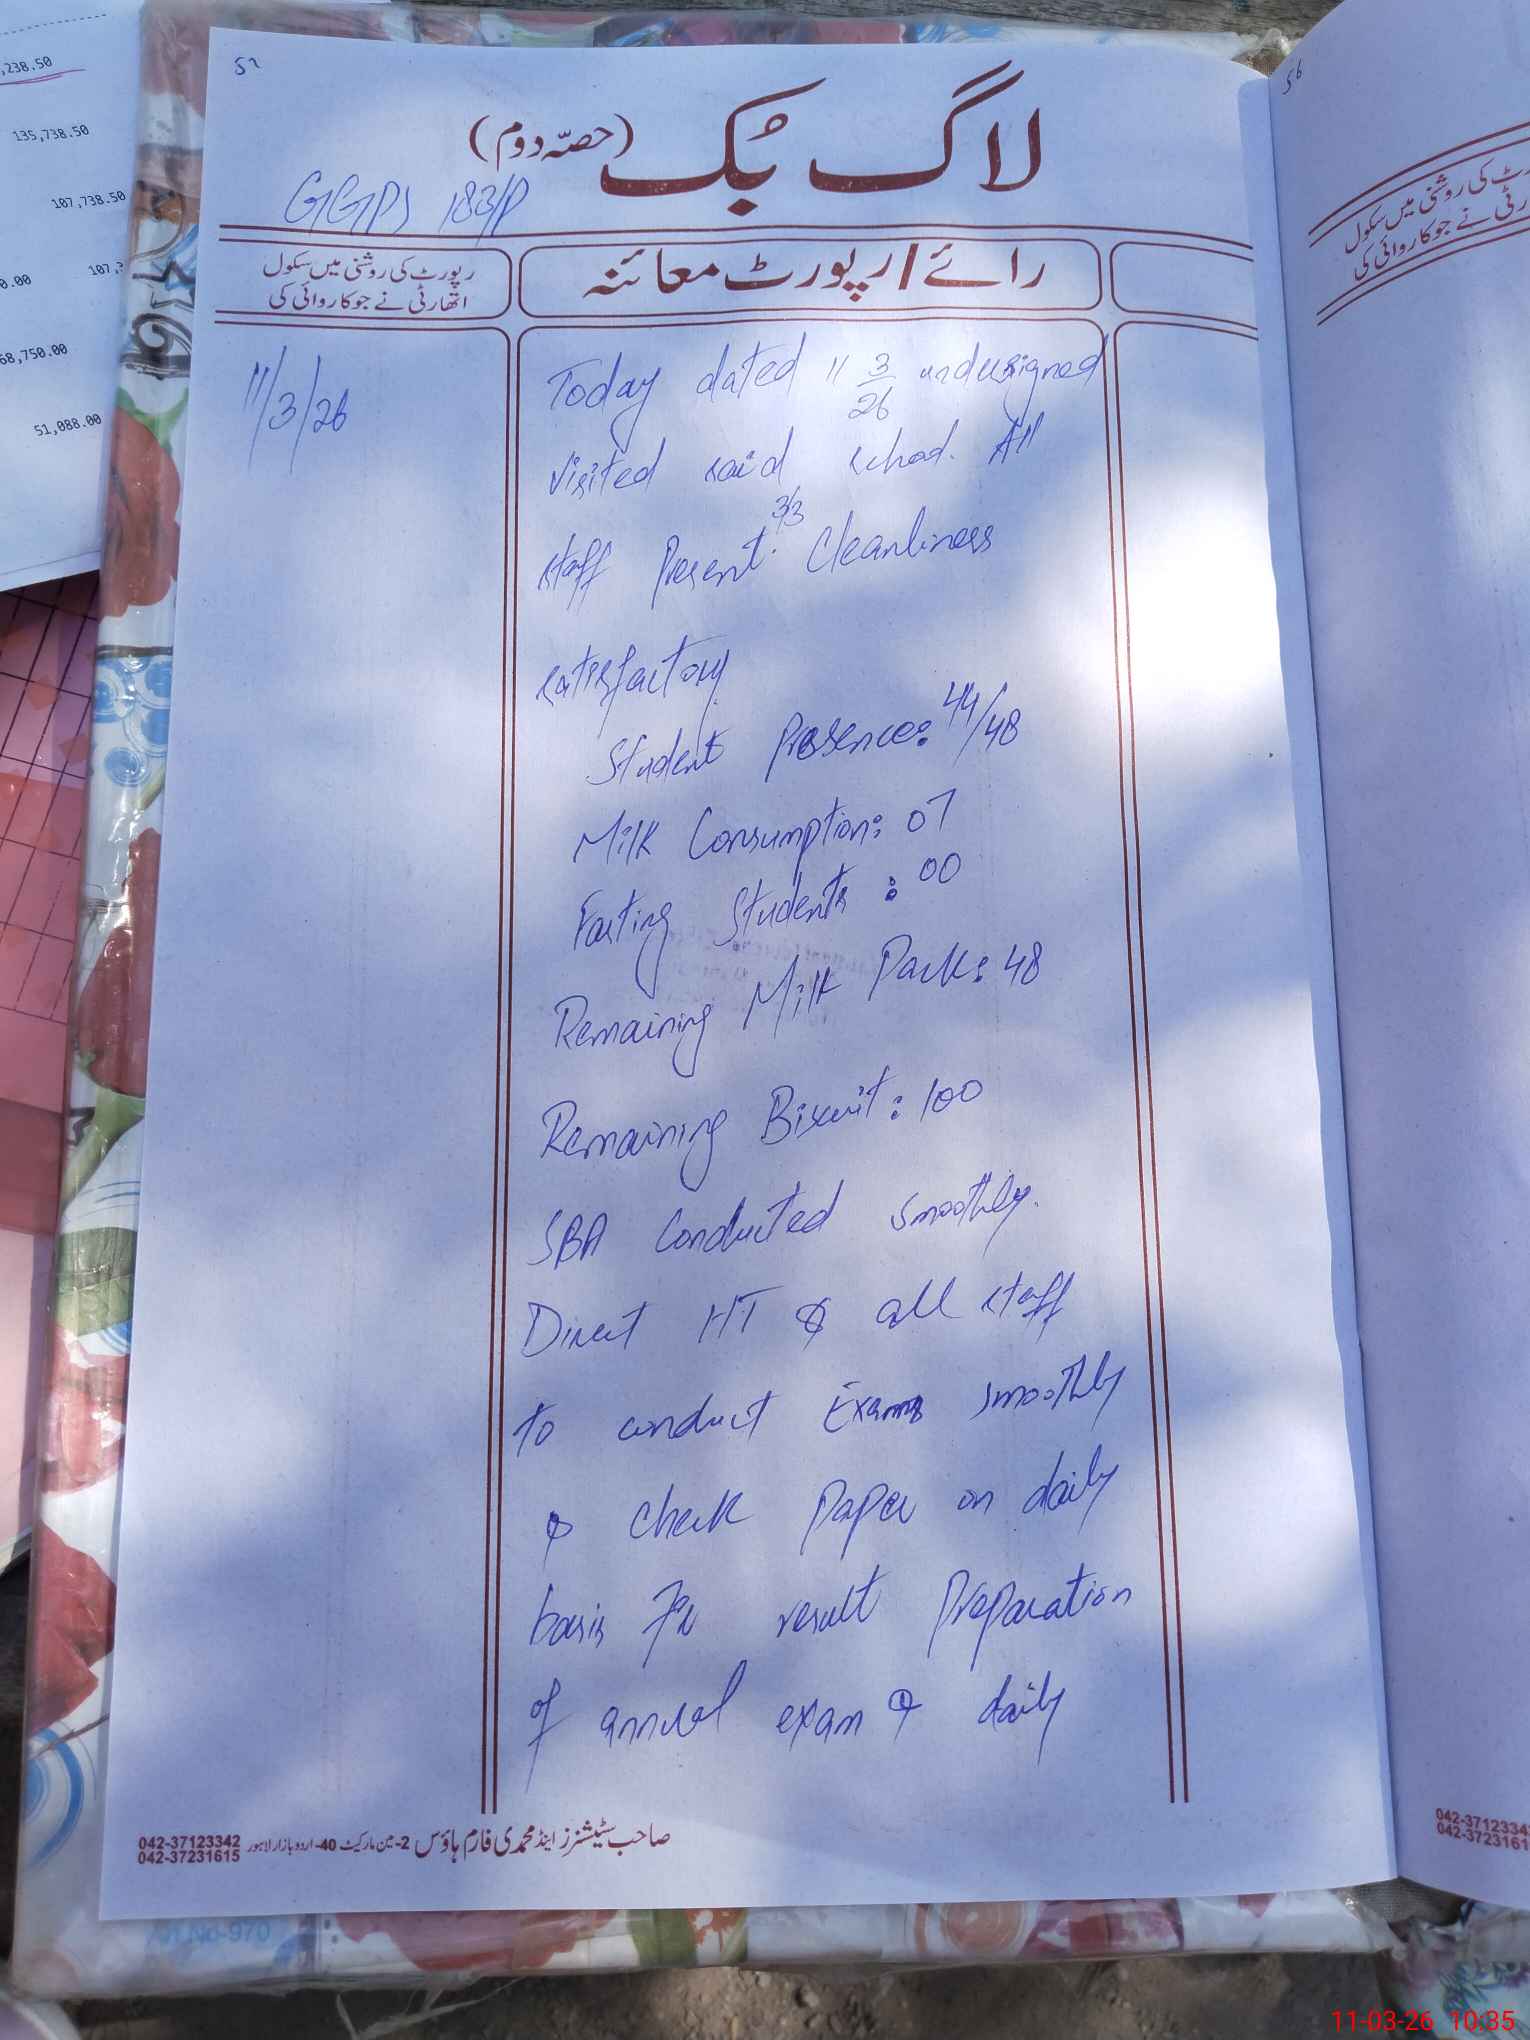 ,238.50
135,738.50
107,738.50
0.00
107,
68,750.00
51,088.00
لاگ بُک (حصّہ دوم)
GGPS 183/P
رپورٹ کی روشنی میں سکول
اتھارٹی نے جو کاروائی کی
رائے/رپورٹ معائنہ
11/3/26
Today dated 11 3/26 undersigned
visited said school. All
staff Present. 3/3 Cleanliness
satisfactory
Student Presence: 44/48
Milk Consumption: 07
Fasting Students : 00
Remaining Milk Pack: 48
Remaining Biscuit : 100
SBA Conducted smoothly.
Direct HT & all staff
to conduct Exams smoothly
& check Paper on daily
basis for result preparation
of annual exam & daily
042-37123342
042-37231615
صاحب سٹیشنرز اینڈ محمدی فارم ہاؤس 2-مین مارکیٹ 40-اردو بازار لاہور
56
رٹ کی روشنی میں سکول
رٹی نے جو کاروائی کی
042-3712334
042-3723161
11-03-26 10:35